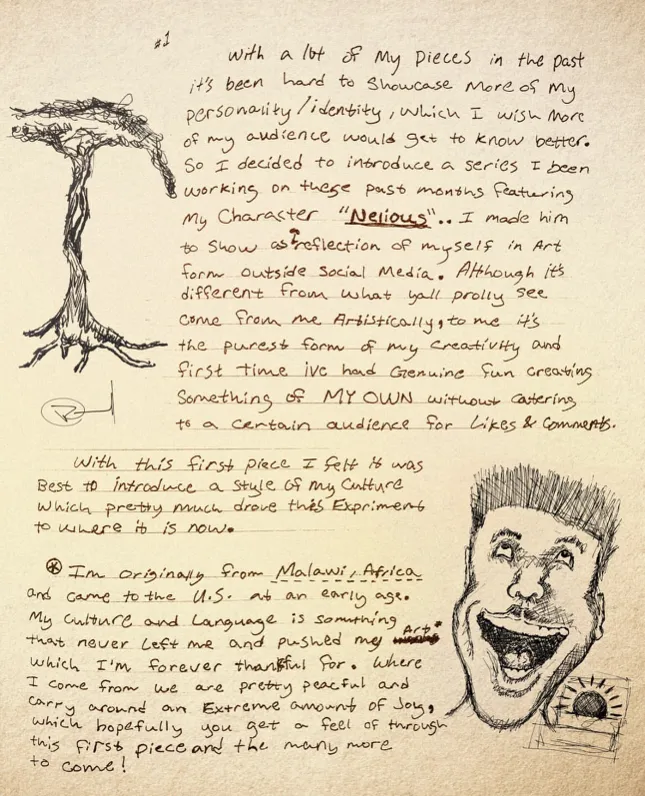 #1
With a lot of My pieces in the past
it's been hard to showcase more of my
personality/identity, which I wish more
of my audience would get to know better.
So I decided to introduce a series I been
working on these past months featuring
My Character "Nelious".. I made him
to show as reflection of myself in Art
form outside Social Media. Although it's
different from what yall prolly see
come from me Artistically, to me it's
the purest form of my creativity and
first time ive had Genuine fun creating
something of MY OWN without catering
to a certain audience for Likes & Comments.
With this first piece I felt it was
Best to introduce a style of my Culture
which pretty much drove this Expriment
to where it is now.
Im originally from Malawi, Africa
and came to the U.S. at an early age.
My Culture and Language is somthing
that never left me and pushed my Art
which I'm forever thankful for. Where
I come from we are pretty peacful and
carry around an Extreme amount of Joy,
which hopefully you get a feel of through
this first piece and the many more
to come!